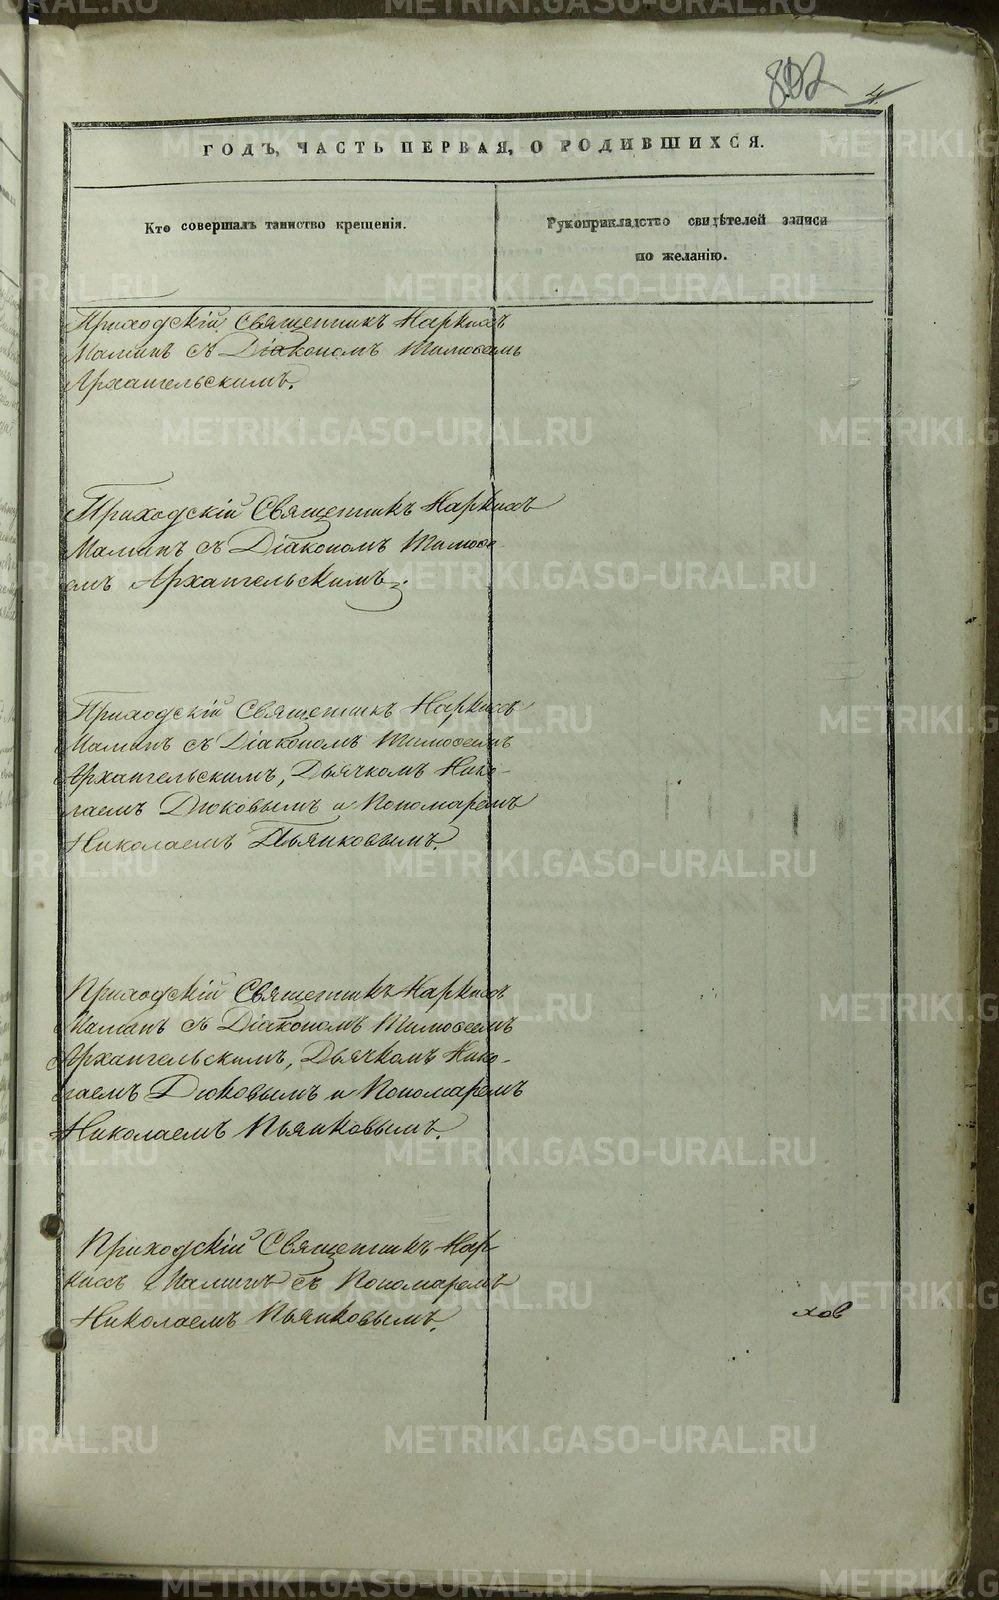 METRIKI.GASO-URAL.RU
802 4.
ГОДЪ, ЧАСТЬ ПЕРВАЯ, О РОДИВШИХСЯ.
Кто совершалъ таинство крещенія.
Рукоприкладство свидѣтелей записи
по желанію.
Приходскій Священникъ Наркисъ
Маминъ съ Діакономъ Тимоѳеемъ
Архангельскимъ.
Приходскій Священникъ Наркисъ
Маминъ съ Діакономъ Тимоѳе-
емъ Архангельскимъ.
Приходскій Священникъ Наркисъ
Маминъ съ Діакономъ Тимоѳеемъ
Архангельскимъ, Дьячкомъ Нико-
лаемъ Дюковымъ и Пономаремъ
Николаемъ Пьянковымъ.
Приходскій Священникъ Наркисъ
Маминъ съ Діакономъ Тимоѳеемъ
Архангельскимъ, Дьячкомъ Нико-
лаемъ Дюковымъ и Пономаремъ
Николаемъ Пьянковымъ.
Приходскій Священникъ Нар-
кисъ Маминъ съ Пономаремъ
Николаемъ Пьянковымъ.
хов